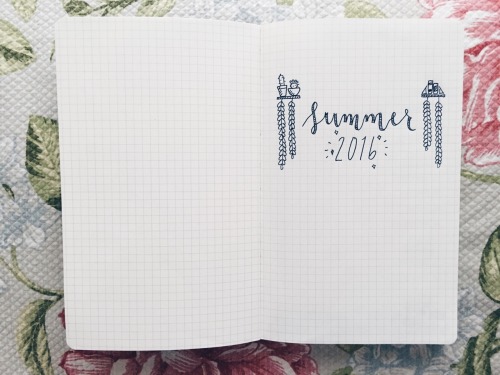 summer
2016